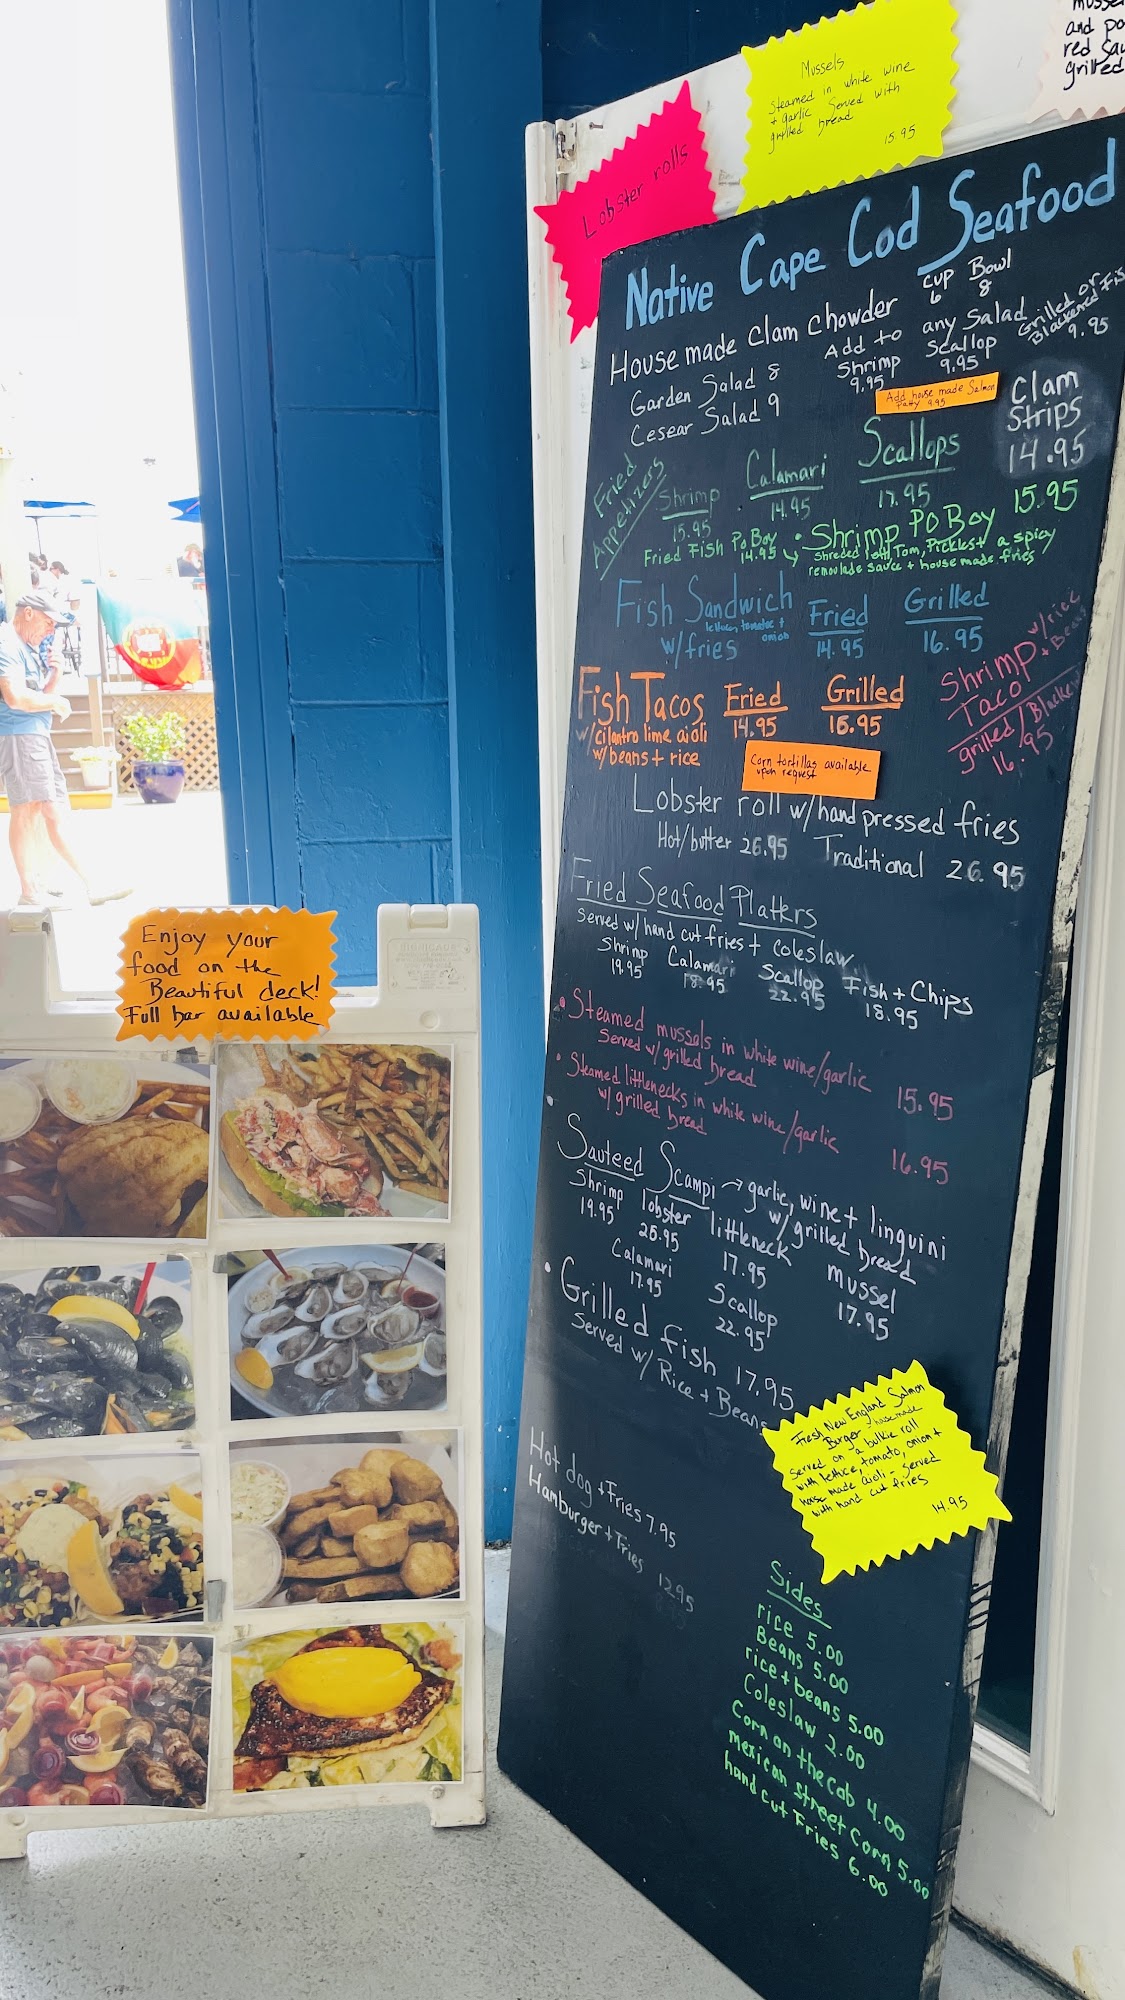 Lobster rolls
Mussels
steamed in white wine
+ garlic served with
grilled bread
15.95
and po
red sau
grilled
Native Cape Cod Seafood
House made Clam Chowder
Cup Bowl
6 8
Garden Salad 8
Cesear Salad 9
Add to any Salad
Shrimp
9.95
Scallop
9.95
Grilled or
Blackened Fis
9.95
Add house made Salmon
Patty 9.95
Clam
Strips
14.95
Fried
Appetizers
Shrimp
15.95
Calamari
14.95
Scallops
17.95
Fried Fish Po Boy
14.95
Shrimp Po Boy 15.95
Shreded lett, Tom, Pickles + a spicy
remoulade sauce + house made fries
Fish Sandwich
lettuce tomatoe +
onion
w/fries
Fried
14.95
Grilled
16.95
Fish Tacos
w/cilantro lime aioli
w/beans + rice
Fried
14.95
Grilled
16.95
Shrimp
Taco
w/rice
+ Beans
grilled/Blacke
16.95
Corn tortillas available
upon request
Lobster roll w/hand pressed fries
Hot/butter 26.95 Traditional 26.95
Fried Seafood Platters
Served w/ hand cut fries + coleslaw
Shrimp
19.95
Calamari
18.95
Scallop
22.95
Fish + Chips
18.95
• Steamed mussels in white wine/garlic
Served w/ grilled bread
15.95
• Steamed littlenecks in white wine/garlic
w/ grilled bread
16.95
Sauteed Scampi → garlic, wine + linguini
w/ grilled bread
Shrimp
19.95
lobster
26.95
littleneck
17.95
mussel
17.95
Calamari
17.95
Scallop
22.95
• Grilled fish 17.95
Served w/ Rice + Beans
Fresh New England Salmon
Burger house made
served on a bulkie roll
with lettuce, tomato, onion +
house made aioli - served
with hand cut fries
14.95
Hot dog + Fries 7.95
Hamburger + Fries 12.95
Sides
rice 5.00
Beans 5.00
rice + beans 5.00
Coleslaw 2.00
Corn on the cob 4.00
mexican street corn 5.00
hand cut Fries 6.00
Enjoy your
food on the
Beautiful deck!
Full bar available